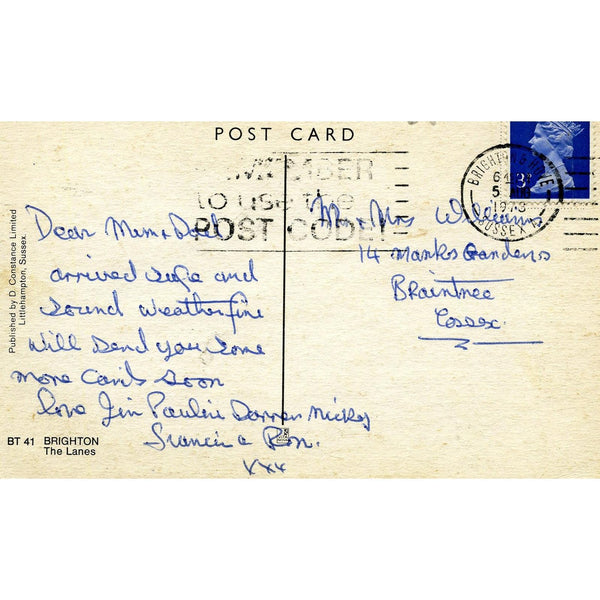 POST CARD
REMEMBER
to use the
POST CODE!
BRIGHTON & HOVE
1973
SUSSEX
3P
Dear Mum & Dad
arrived safe and
sound weather fine
will send you some
more cards soon
love Jim Pauline Darren Micky
& Ron.
xxx
Mr & Mrs Williams
14 Marks Gardens
Braintree
Essex
Published by D. Constance Limited
Littlehampton, Sussex.
BT 41 BRIGHTON
The Lanes